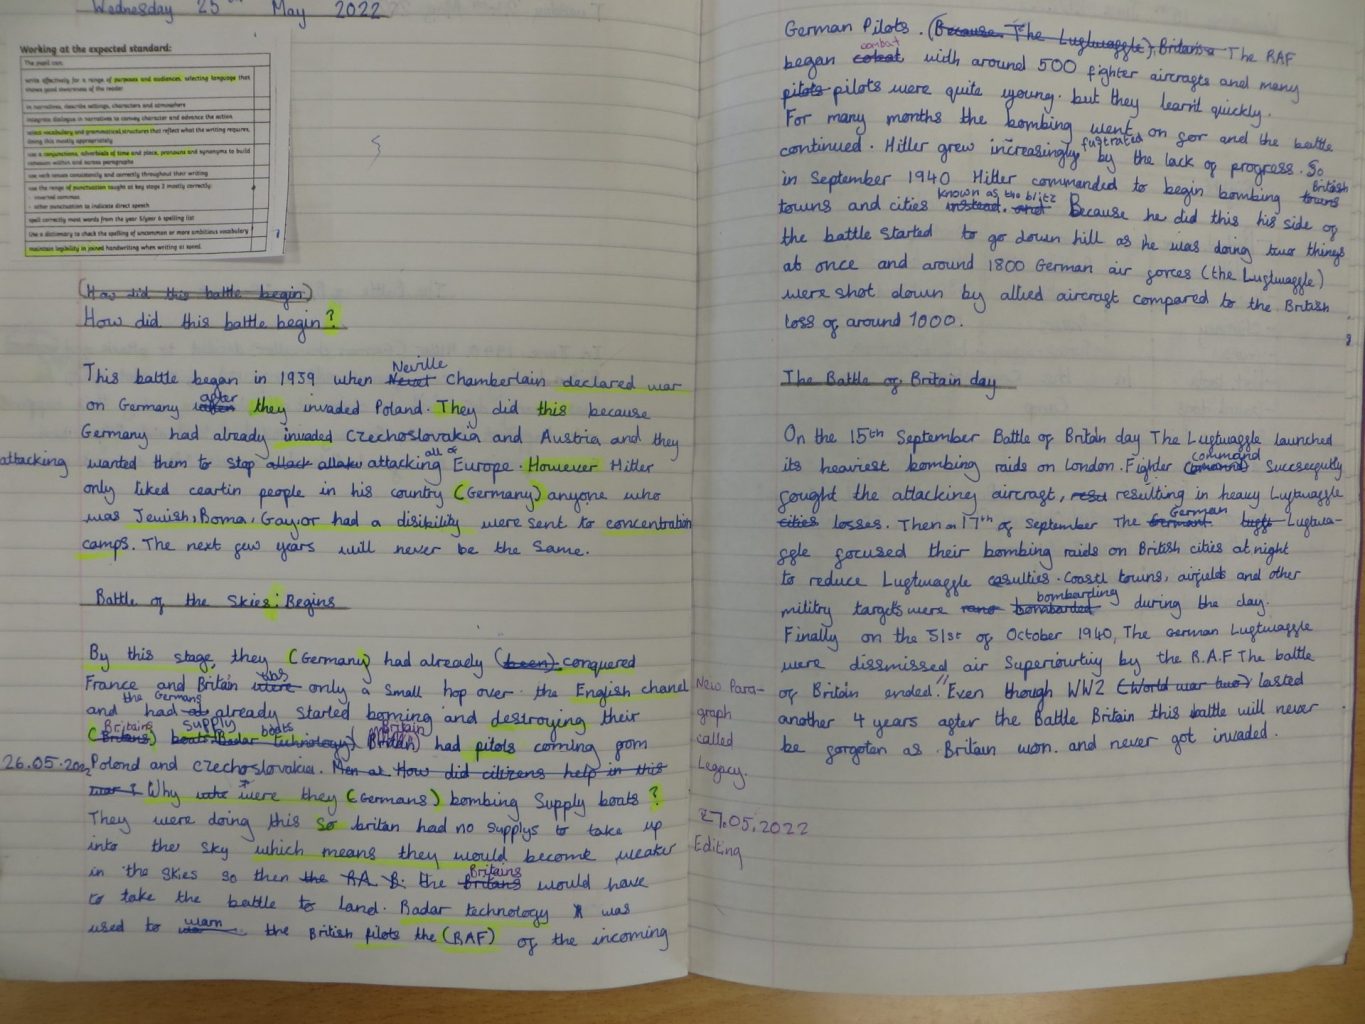 Wednesday 25th May 2022
Working at the expected standard:
The pupil can:
write effectively for a range of purposes and audiences, selecting language that
shows good awareness of the reader
in narratives, describe settings, characters and atmosphere
integrate dialogue in narratives to convey character and advance the action
select vocabulary and grammatical structures that reflect what the writing requires,
doing this mostly appropriately
use a conjunctions, adverbials of time and place, pronouns and synonyms to build
cohesion within and across paragraphs
use verb tenses consistently and correctly throughout their writing
use the range of punctuation taught at key stage 2 mostly correctly:
- inverted commas
- other punctuation to indicate direct speech
spell correctly most words from the year 5/year 6 spelling list
Use a dictionary to check the spelling of uncommon or more ambitious vocabulary
maintain legibility in joined handwriting when writing at speed.
(How did this battle begin)
How did this battle begin?
Neville
This battle began in 1939 when Chamberlain declared war
after
on Germany they invaded Poland. They did this because
Germany had already invaded Czechoslovakia and Austria and they
all of
attacking wanted them to stop attacking Europe. However Hitler
only liked ceartin people in his country (Germany) anyone who
was Jewish, Roma, Gay, or had a disibility were sent to concentration
camps. The next few years will never be the same.
Battle of the Skies: Begins
By this stage, they (Germany) had already (been) conquered
was
France and Britain were only a small hop over the English chanel
the Germans
and had already started boming and destroying their
Britains supply boats
(Britans) boats. Radar technology) had pilots coming from
26.05.2022 Polond and czechoslovakia. How did citizens help in this
war? Why were they (Germans) bombing Supply boats?
They were doing this so britan had no supplys to take up
into the sky which means they would become weaker
Britains
in the skies so then the RA the Britans would have
to take the battle to land. Radar technology was
warn
used to the British pilots the (RAF) of the incoming
German Pilots. (Because The Luftwaffle), Britans The RAF
combat
began with around 500 fighter aircrafts and many
pilots pilots were quite young. but they learnt quickly.
For many months the bombing went on for and the battle
fustrated
continued. Hitler grew increasingly by the lack of progress. So
British
in September 1940 Hitler commanded to begin bombing towns
known as the blitz
towns and cities instead. and Because he did this his side of
the battle started to go down hill as he was doing two things
at once and around 1800 German air forces (the Luftwaffle)
were shot down by allied aircraft compared to the British
loss of around 1000.
The Battle of Britain day
On the 15th September Battle of Britain day The Luftwaffle launched
command
its heaviest bombing raids on London. Fighter succsefully
fought the attacking aircraft, resulting in heavy Luftwaffle
German
cities losses. Then on 17th of September The Germant Luftwa-
ffle focused their bombing raids on British cities at night
to reduce Luftwaffle casulties. Coastl towns, airfulds and other
bombarding
militry targets were bombarded during the day.
Finally on the 31st of October 1940, The German Luftwaffle
were dissmissed air Superiourtiy by the R.A.F The battle
of Britain ended.// Even though WW2 (World war two) lasted
another 4 years after the Battle Britain this battle will never
be forgoten as Britain won. and never got invaded.
New Para-
graph
called
Legacy.
27.05.2022
Editing